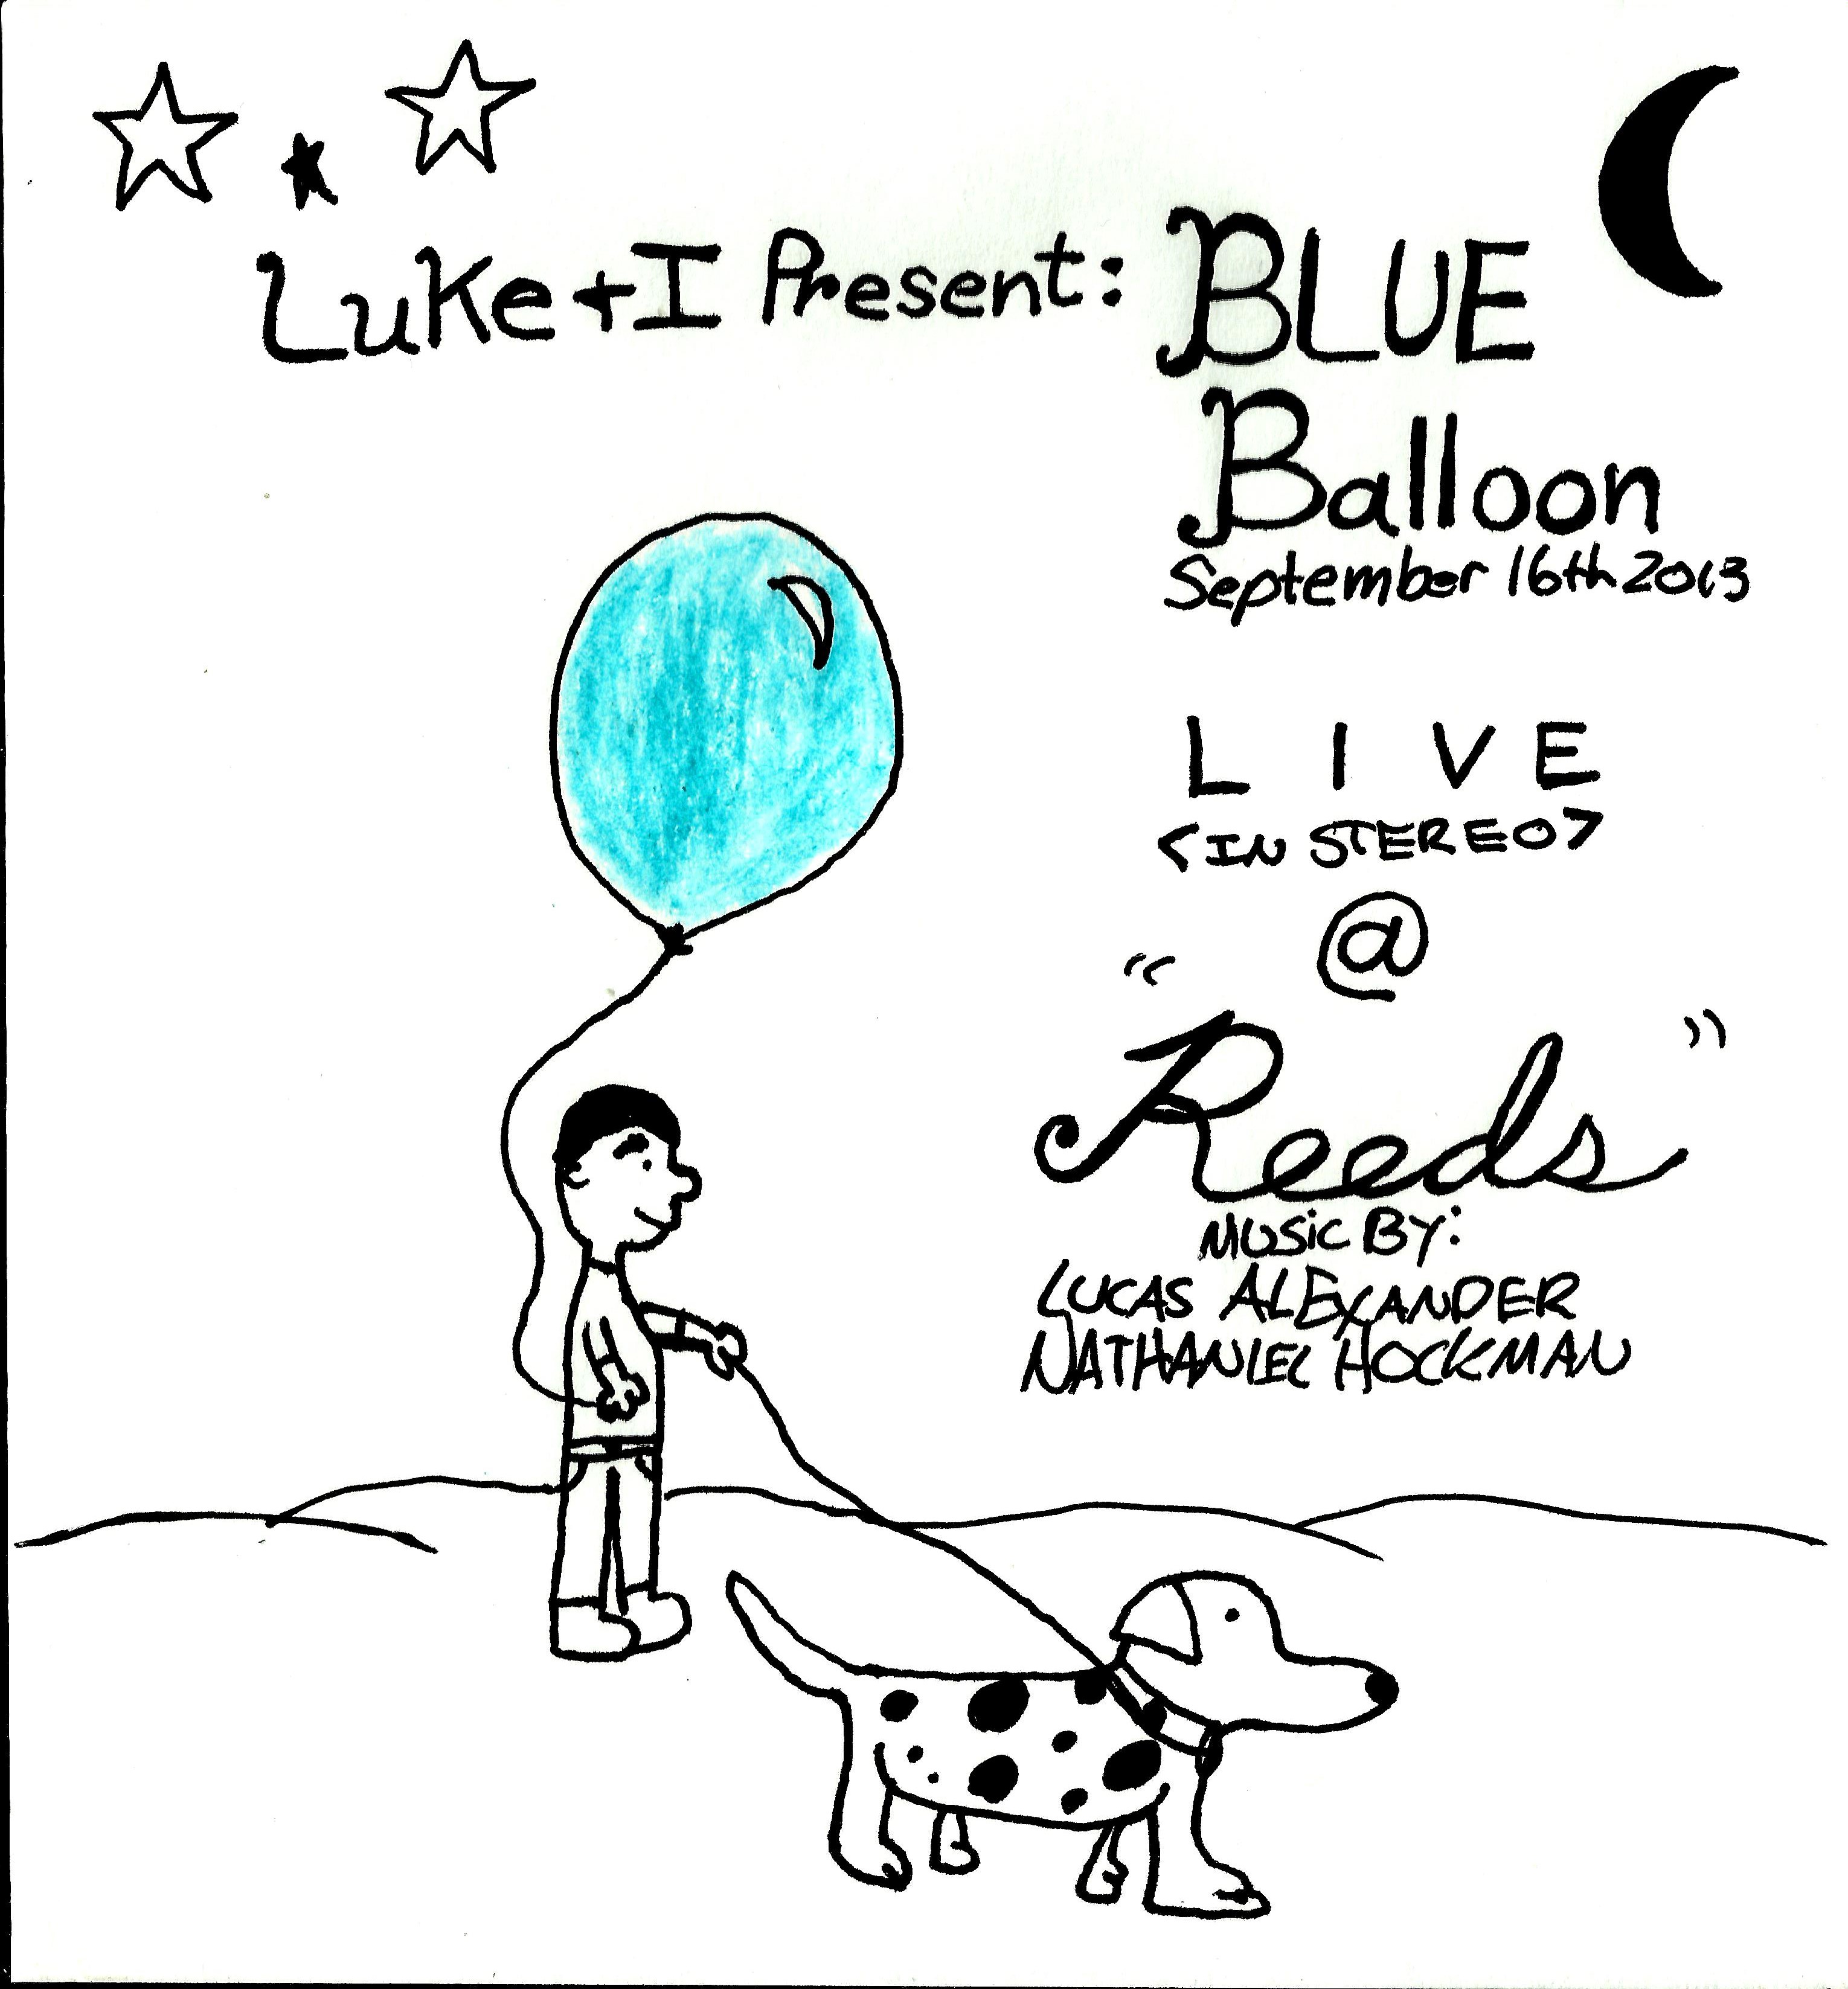 Luke + I Present: BLUE
Balloon
September 16th 2013
LIVE
<IN STEREO>
@
"Reeds"
MUSiC BY:
LUCAS ALEXANDER
NATHANIEL HOCKMAN